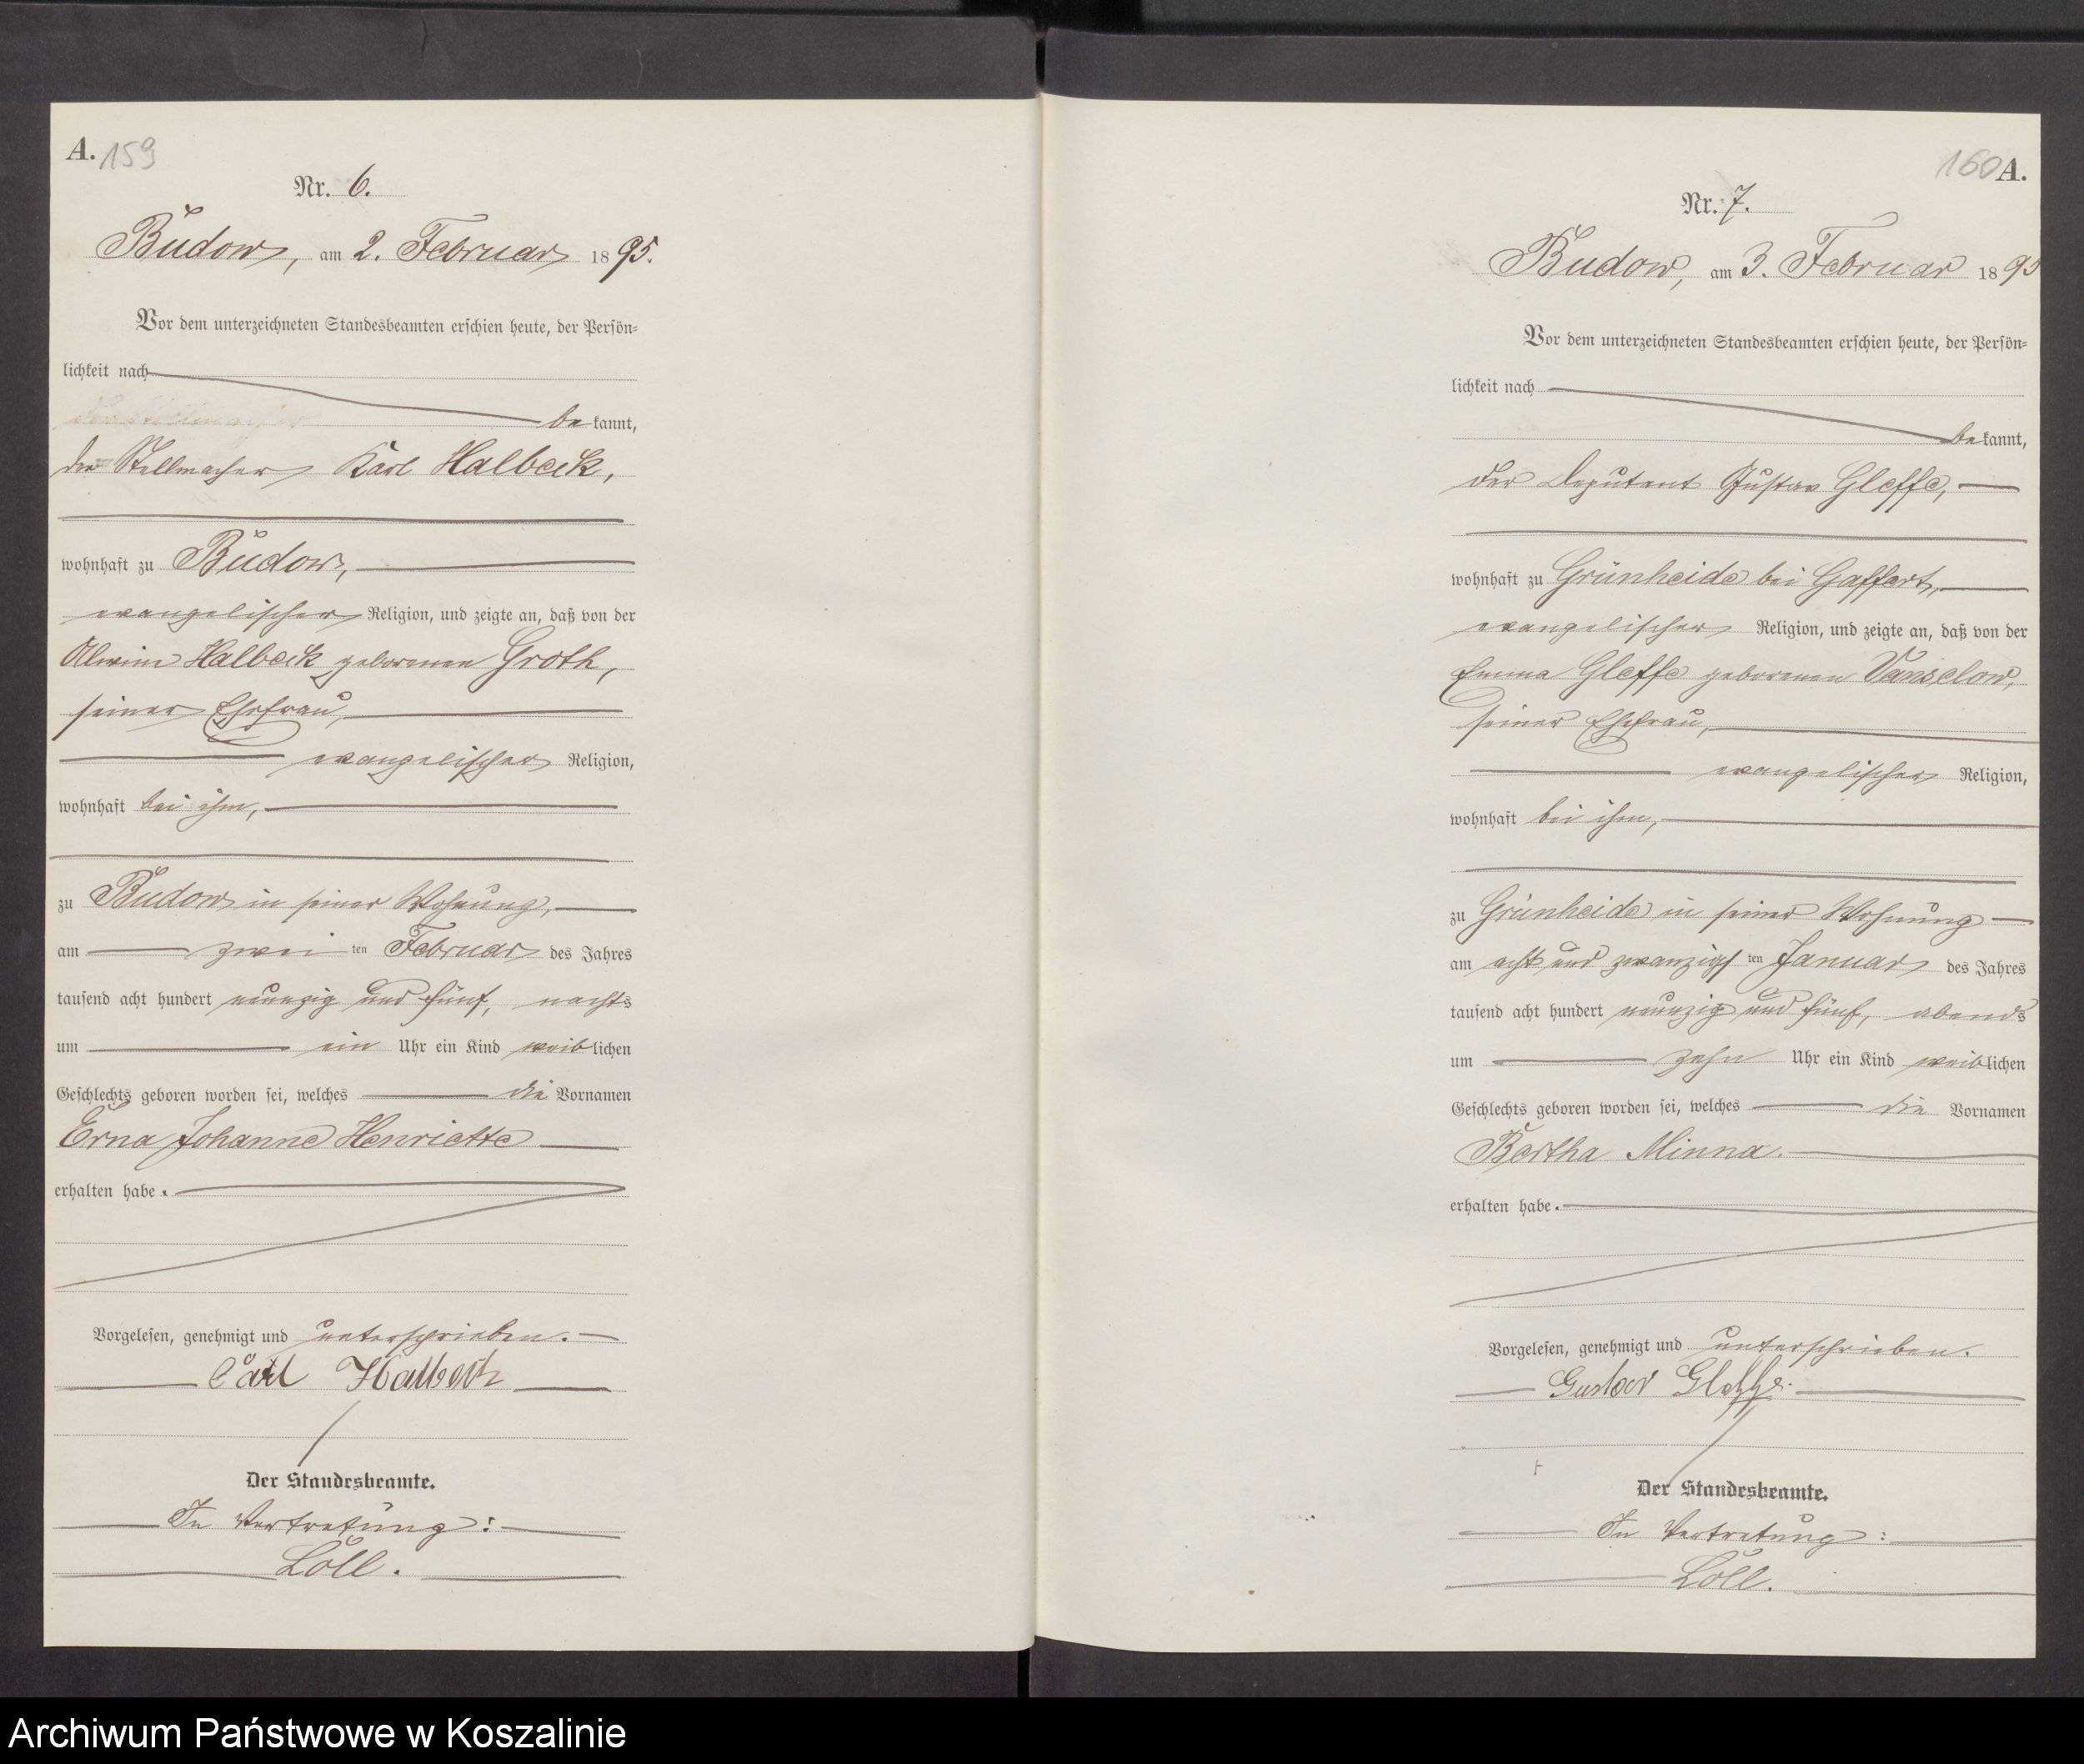 A. 159
Nr. 6.
Budow, am 2. Februar 1895.
Vor dem unterzeichneten Standesbeamten erschien heute, der Persön-
lichkeit nach
bekannt,
der Stellmacher Karl Halbeck,
wohnhaft zu Budow,
evangelischer Religion, und zeigte an, daß von der
Alwine Halbeck geborenen Groth,
seiner Ehefrau,
evangelischer Religion,
wohnhaft bei ihm,
zu Budow in seiner Wohnung,
am zweiten Februar des Jahres
tausend acht hundert neunzig und fünf, nachts
um ein Uhr ein Kind weiblichen
Geschlechts geboren worden sei, welches die Vornamen
Erna Johanne Henriette
erhalten habe.
Vorgelesen, genehmigt und unterschrieben.
Carl Halbeck
Der Standesbeamte.
In Vertretung:
Löll.
160 A.
Nr. 7.
Budow, am 3. Februar 1895
Vor dem unterzeichneten Standesbeamten erschien heute, der Persön-
lichkeit nach
bekannt,
der Deputant Gustav Gleffe,
wohnhaft zu Grünheide bei Gaffert,
evangelischer Religion, und zeigte an, daß von der
Emma Gleffe geborenen Vanselow,
seiner Ehefrau,
evangelischer Religion,
wohnhaft bei ihm,
zu Grünheide in seiner Wohnung
am acht und zwanzigsten Januar des Jahres
tausend acht hundert neunzig und fünf, abends
um zehn Uhr ein Kind weiblichen
Geschlechts geboren worden sei, welches die Vornamen
Bertha Minna.
erhalten habe.
Vorgelesen, genehmigt und unterschrieben.
Gustav Gleffe.
Der Standesbeamte.
In Vertretung:
Löll.
Archiwum Państwowe w Koszalinie